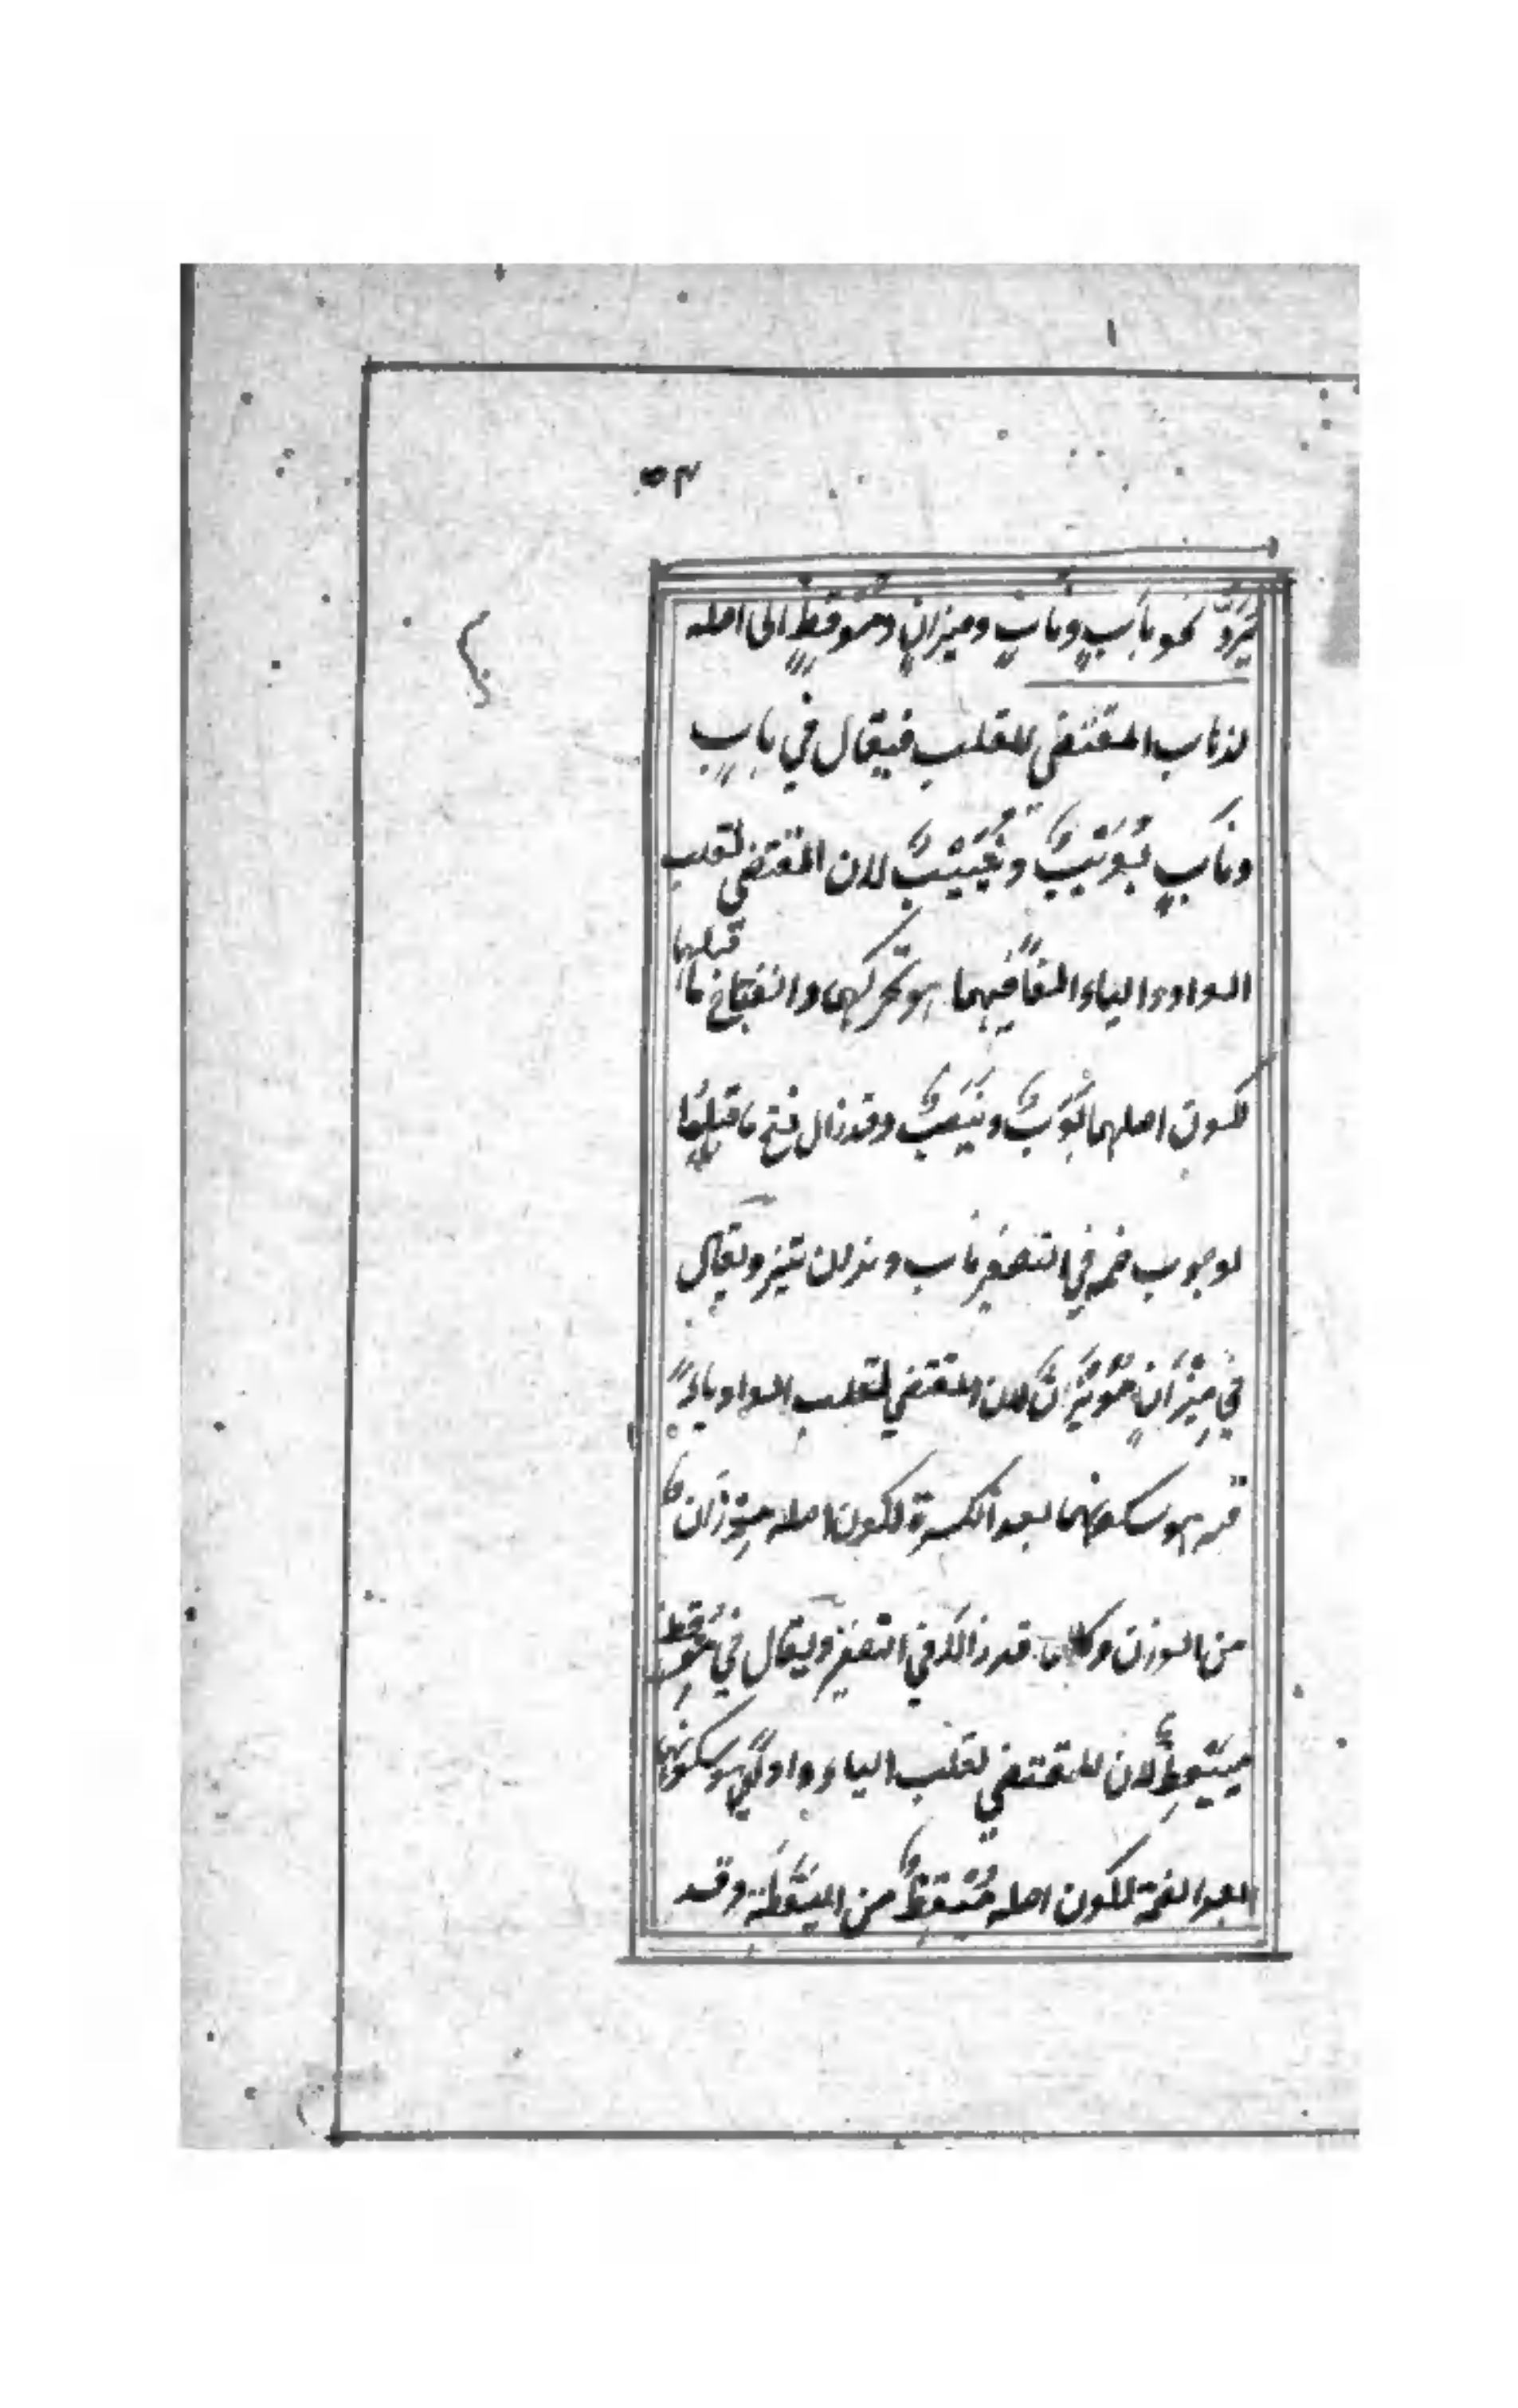 ٥٣
يُرَدُّ نحو بابٍ ونابٍ وميزانٍ وموقظٍ الى اصله
لذهاب المقتضى للقلب فيقال في بابٍ
ونابٍ بُوَيْبٌ ونُيَيْبٌ لان المقتضى لقلب
الواو والياء الفًا فيهما هو تحركهما وانفتاح ما قبلهما
لكون اصلهما بَوَبٌ ونَيَبٌ وقد زال فتح ما قبلهما
لوجوب ضمه في التصغير ويقال
في مِيْزَانٍ مُوَيْزَانٌ لان المقتضي لقلب الواو ياءً
هو سكونها بعد الكسرة لكون اصله مِوْزَان
من الوزن قد زال في التصغير ويقال في مُوقظ
مُيَيْقِظٌ لان المقتضي لقلب الياء واوا هو سكونها
بعد الضمة لكون اصله مُيْقِظٌ من اليَقَظَة وقد